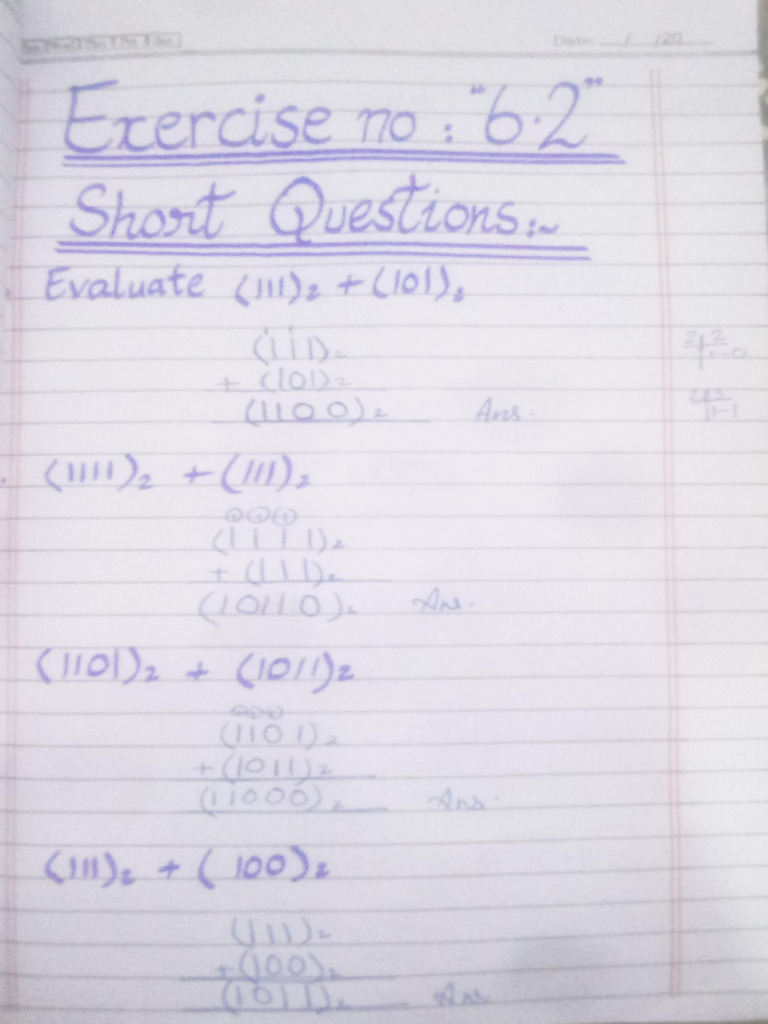 Date: __/__/20__
Exercise no : "6.2"
Short Questions:~
Evaluate (111)₂ + (101)₂
(111)₂
+ (101)₂
(1100)₂ Ans.
(1111)₂ + (111)₂
(1111)₂
+ (111)₂
(10110)₂ Ans.
(1101)₂ + (1011)₂
(1101)₂
+ (1011)₂
(11000)₂ Ans.
(111)₂ + (100)₂
(111)₂
+ (100)₂
(1011)₂ Ans